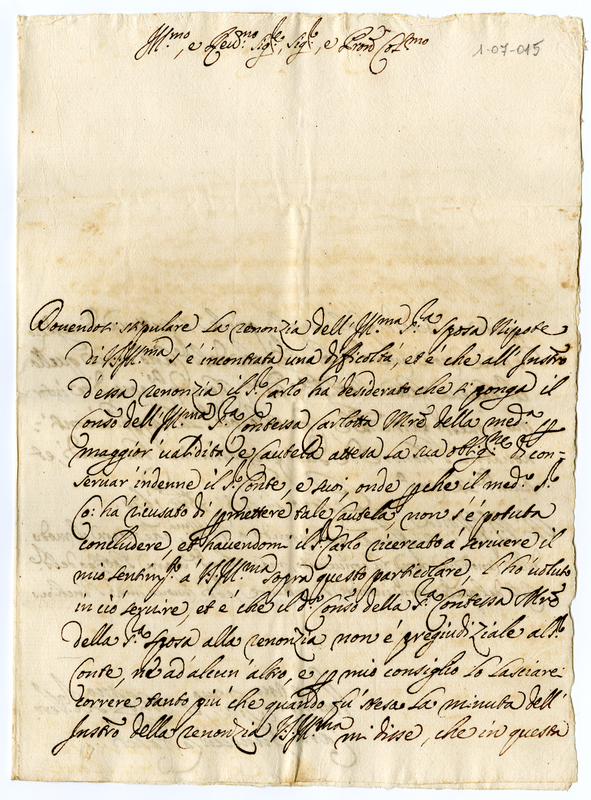 Ill.mo, e Reud.mo Sig.re, Sig.re, e Pron Col.mo
1-07-015
Douendosi stipulare la renonzia dell'Ill.ma S.ra Sposa Nipote
di V.S.Ill.ma s'é incontrata una dificoltá, et é che all'Instro
d'essa renonzia il S.r Carlo há desiderato che si ponga il
Conso dell'Ill.ma S.ra Contessa Carlotta Mre della med.a p
maggior ualiditá, e Cautela attesa la sua oblig.ne di con-
seruar indenne il S.r Conte, e suoi, onde pche il med.o S.r
Co: há ricusato di pmettere tale Cautela non s'é potuta
concludere, et hauendomi il S.r Carlo ricercato á scriuere il
mio sentim.to á V.S.Ill.ma sopra questo particolare, l'hó uoluto
in ció seruire, et é che il d.o Conso della S.ra Contessa Mre
della S.ra Sposa alla renonzia non é pregiudiziale al S.r
Conte, né ad'alcun'altro, e p mio consiglio lo lasciarei
correre tanto piú che quando fú stesa la minuta dell'
Instro della renonzia V.S.Ill.ma mi disse, che in questa